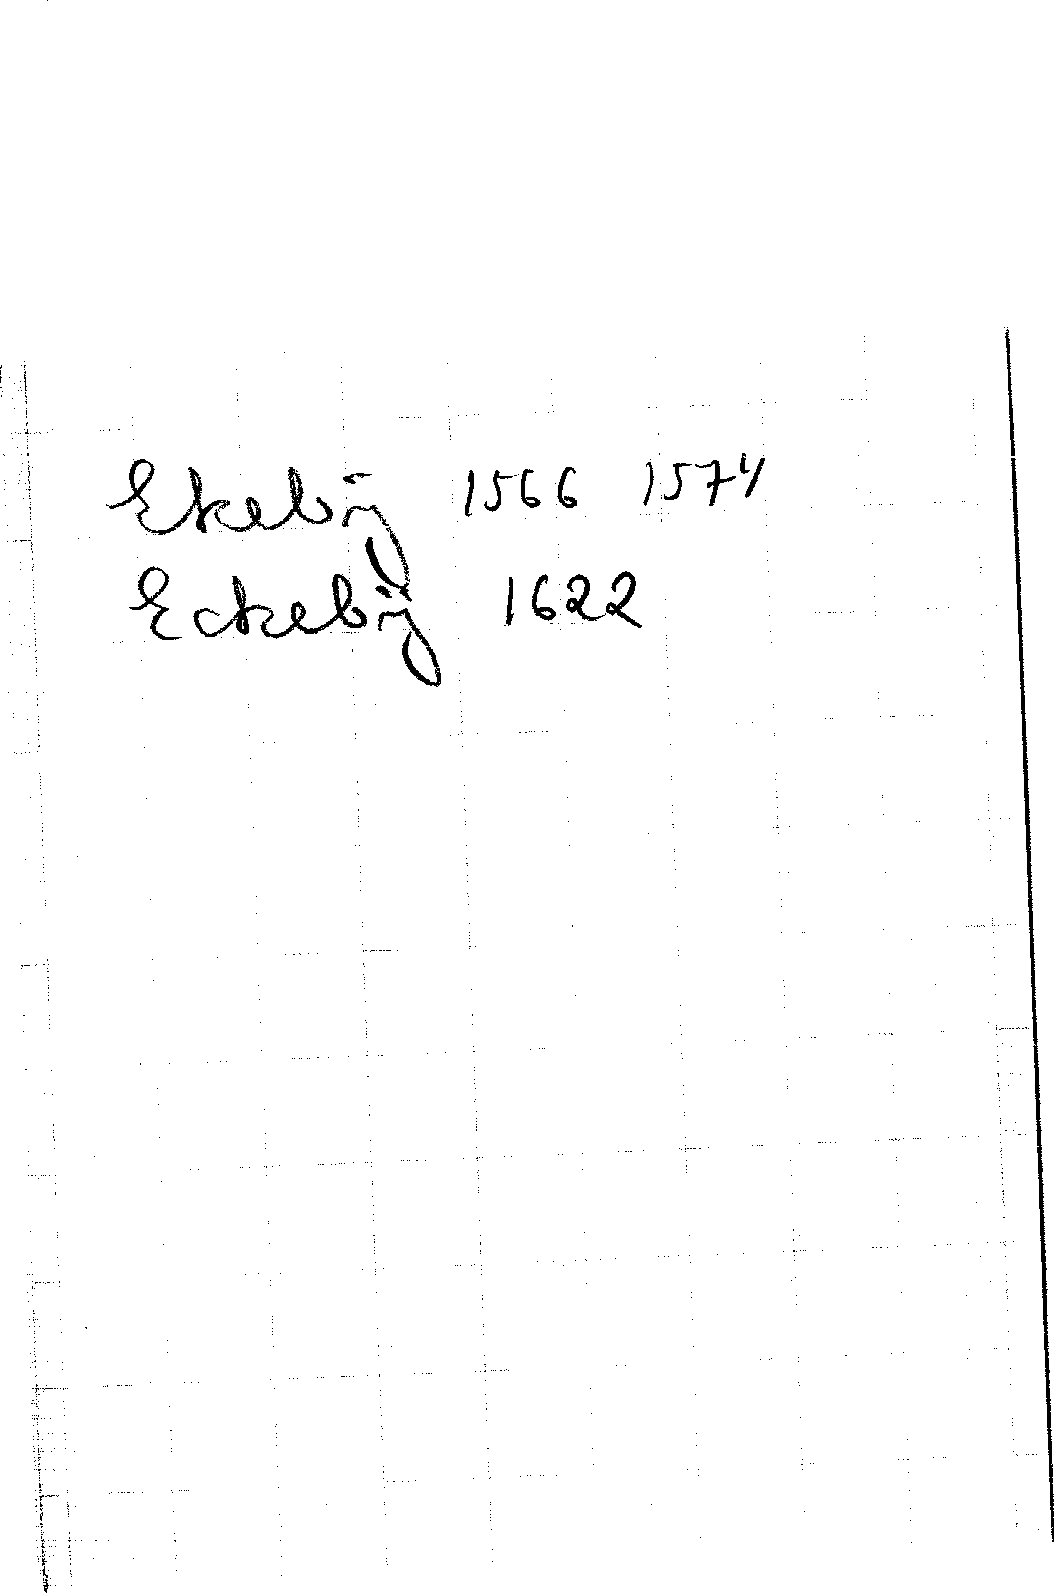 Ekebÿ 1566 1574
Eckebÿ 1622